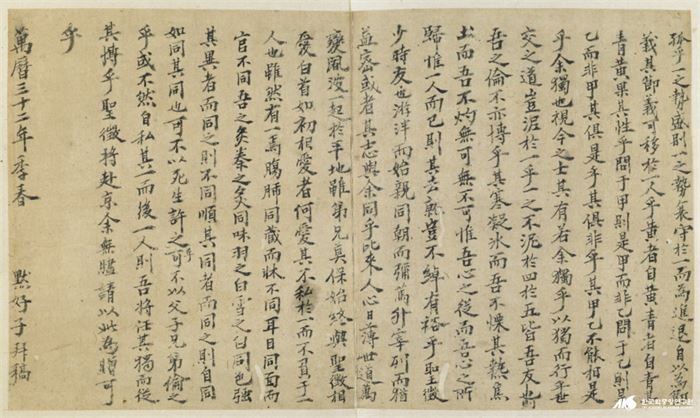 孤乎一之勢盛則一之勢衰守於一而為進退自以為節
義其節義可移於一人乎黃者自黃青者自青其
青黃果其性乎問于甲則是甲而非乙問于乙則是
乙而非甲其俱是乎其俱非乎其甲乙不能相是
乎余獨也視今之士其有若余獨乎以獨而行乎世
交之道豈泥於一乎一之不泥於四於五皆吾友則
吾之倫不亦博乎其寒凝冰而吾不慄其熱焦
土而吾不灼無可無不可惟吾心之從而吾心之所
歸惟一人而已則其去就豈不綽有裕乎聖徵
少時友也游泮而始親同朝而彌篤升宰列而猶
益密或者其志與余同乎比來人心日薄世道萬
變風波一起於平地雖弟兄莫保始終與聖徵相
愛白首如初相愛者何愛其不私於一而不負于一
人也雖然有一焉膓肺同藏而脉不同耳目同面而
官不同吾之炙秦之炙同味羽之白雪之白同色強
其異者而同之則不同順其同者而同之則自同
如同其同也可不以死生許之乎可不以父子兄弟倫之
乎或不然自私其一而後一人則吾將任其獨而從
其搏乎聖徵將赴京余無贐請以此為贈可
乎
萬曆三十二年季春 默好子拜稿
한국학중앙연구원